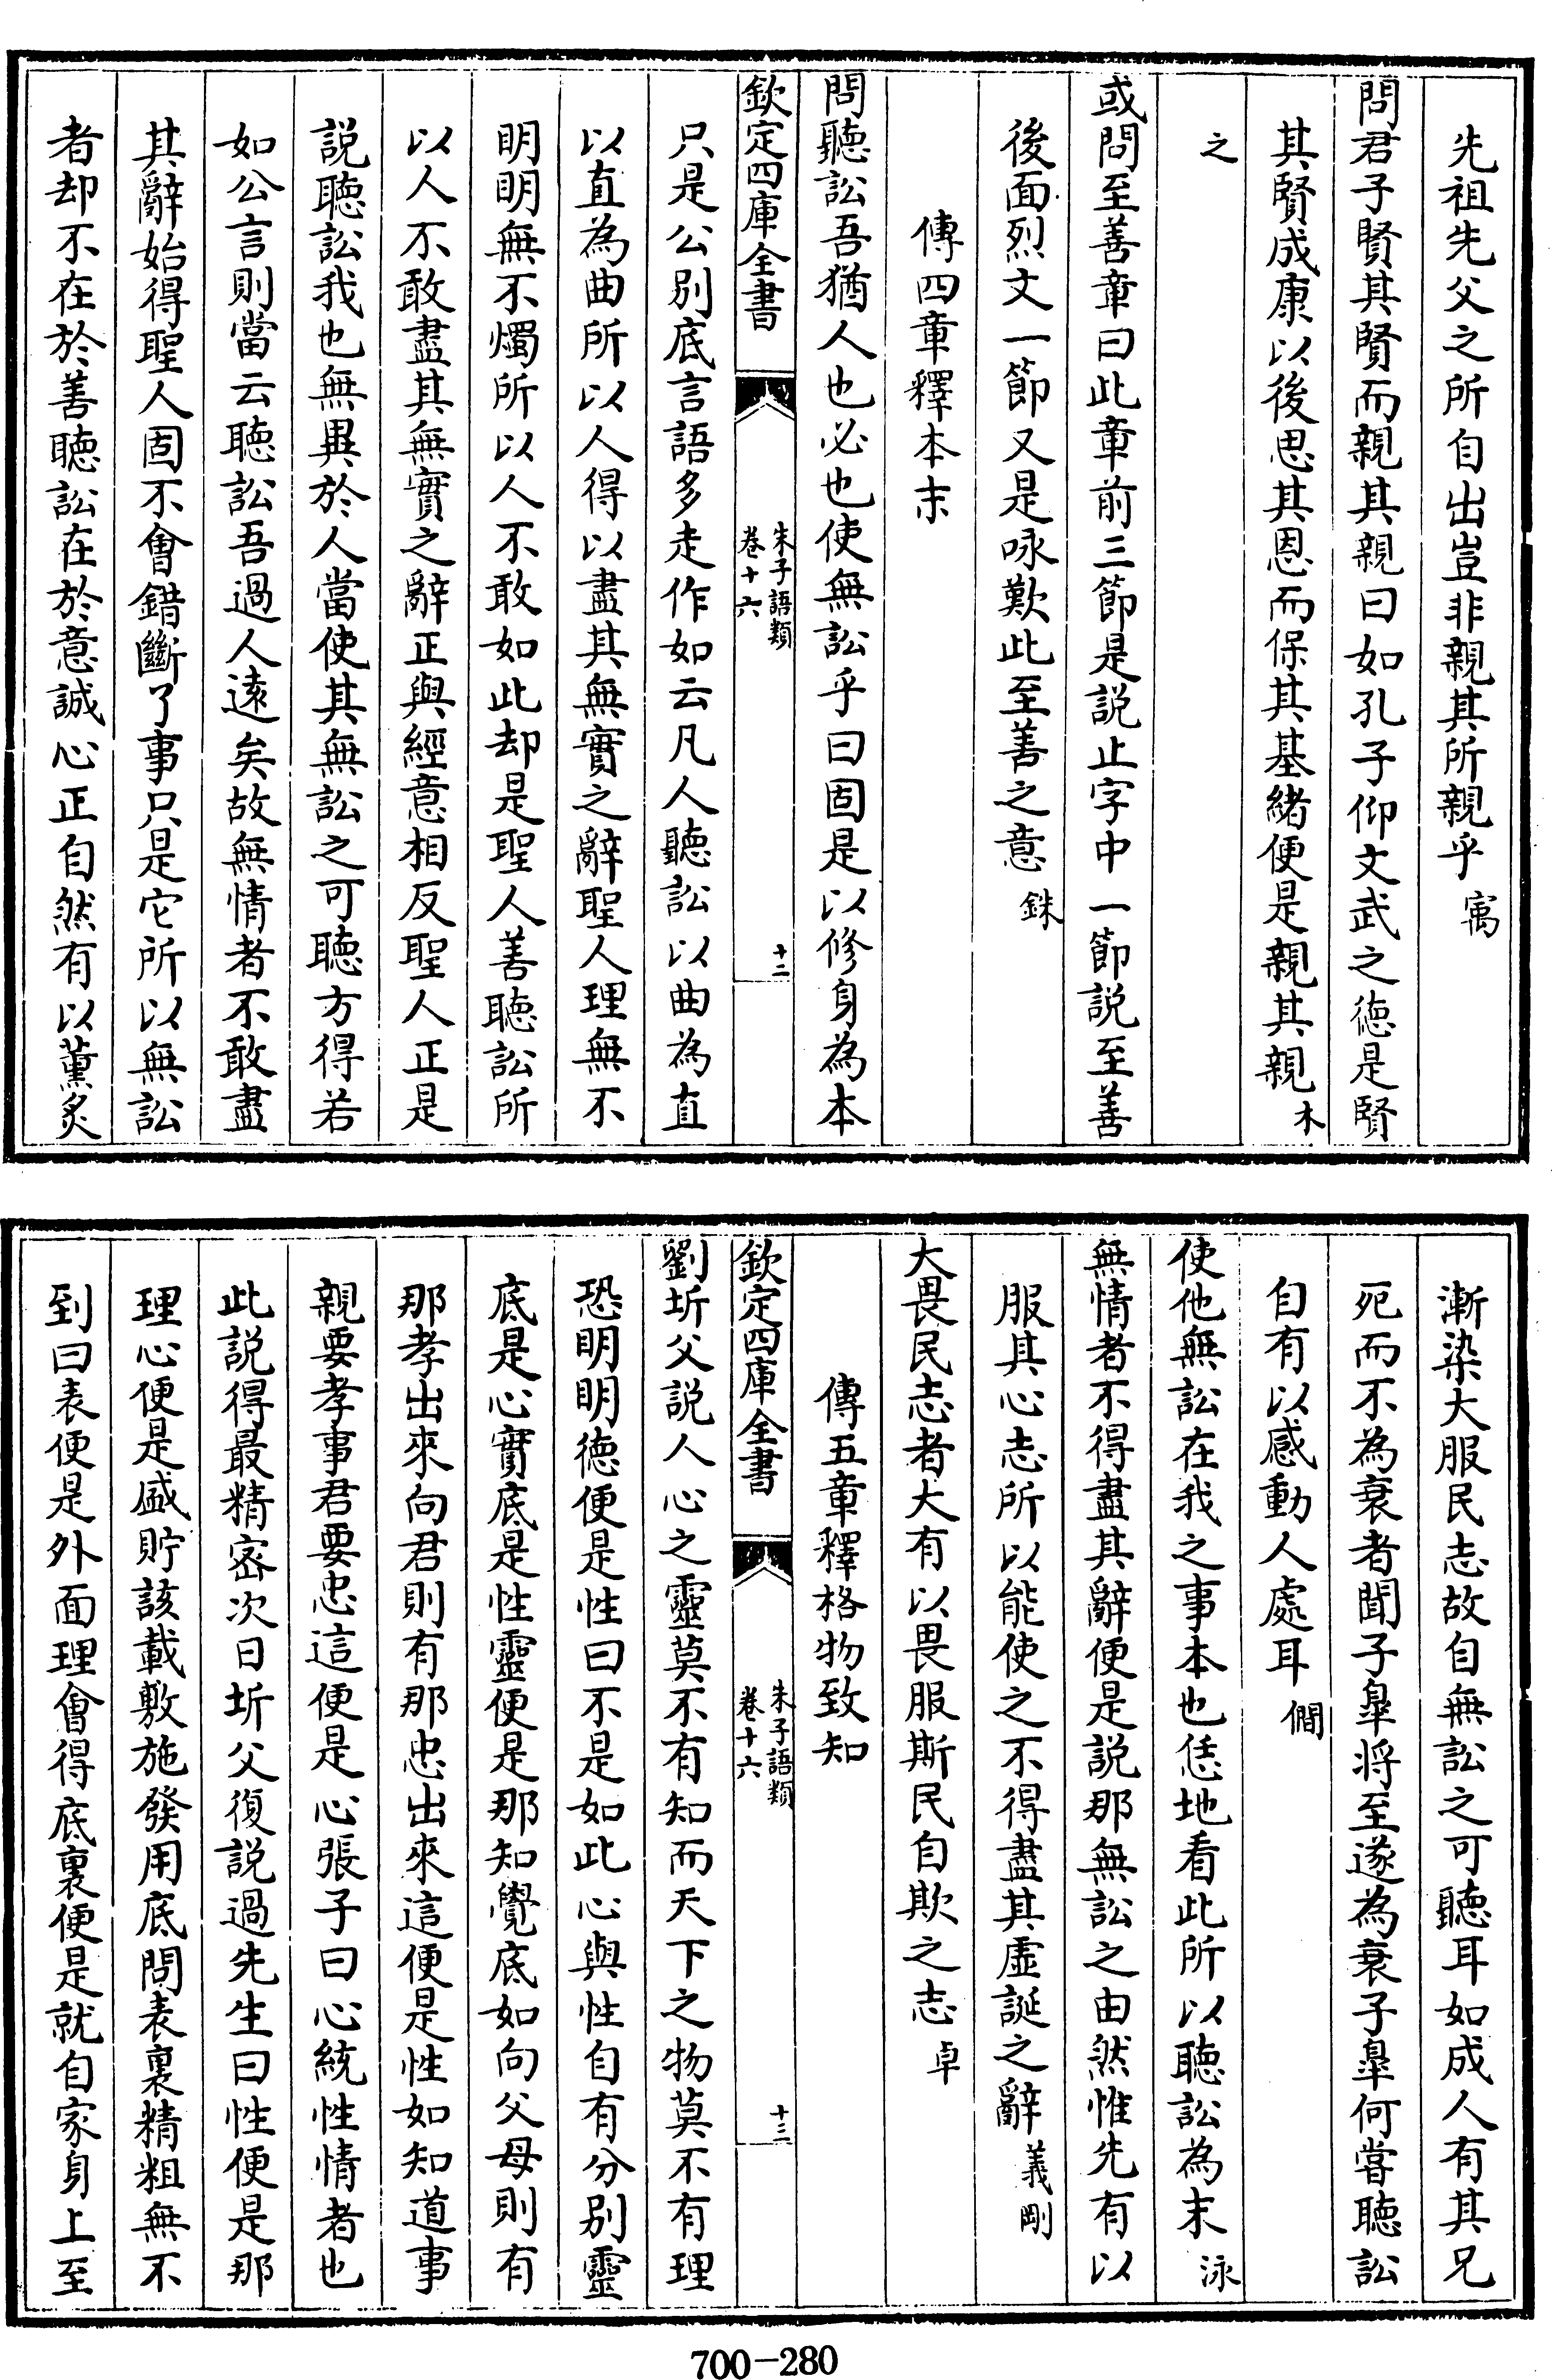 先祖先父之所自出豈非親其所親乎寓
問君子賢其賢而親其親曰如孔子仰文武之德是賢
其賢成康以後思其恩而保其基緒便是親其親木
之
或問至善章曰此章前三節是説止字中一節説至善
後面烈文一節又是咏歎此至善之意銖
傳四章釋本末
問聽訟吾猶人也必也使無訟乎曰固是以修身為本
欽定四庫全書
朱子語類
卷十六
十二
只是公别底言語多走作如云凡人聽訟以曲為直
以直為曲所以人得以盡其無實之辭聖人理無不
明明無不燭所以人不敢如此却是聖人善聽訟所
以人不敢盡其無實之辭正與經意相反聖人正是
説聽訟我也無異於人當使其無訟之可聽方得若
如公言則當云聽訟吾過人遠矣故無情者不敢盡
其辭始得聖人固不會錯斷了事只是它所以無訟
者却不在於善聽訟在於意誠心正自然有以薰炙
漸染大服民志故自無訟之可聽耳如成人有其兄
死而不為衰者聞子臯将至遂為衰子臯何嘗聽訟
自有以感動人處耳僩
使他無訟在我之事本也恁地看此所以聽訟為末泳
無情者不得盡其辭便是説那無訟之由然惟先有以
服其心志所以能使之不得盡其虛誕之辭義剛
大畏民志者大有以畏服斯民自欺之志卓
傳五章釋格物致知
欽定四庫全書
朱子語類
卷十六
十三
劉圻父説人心之靈莫不有知而天下之物莫不有理
恐明明德便是性曰不是如此心與性自有分别靈
底是心實底是性靈便是那知覺底如向父母則有
那孝出來向君則有那忠出來這便是性如知道事
親要孝事君要忠這便是心張子曰心統性情者也
此説得最精密次日圻父復説過先生曰性便是那
理心便是盛貯該載敷施發用底問表裏精粗無不
到曰表便是外面理會得底裏便是就自家身上至
700-280